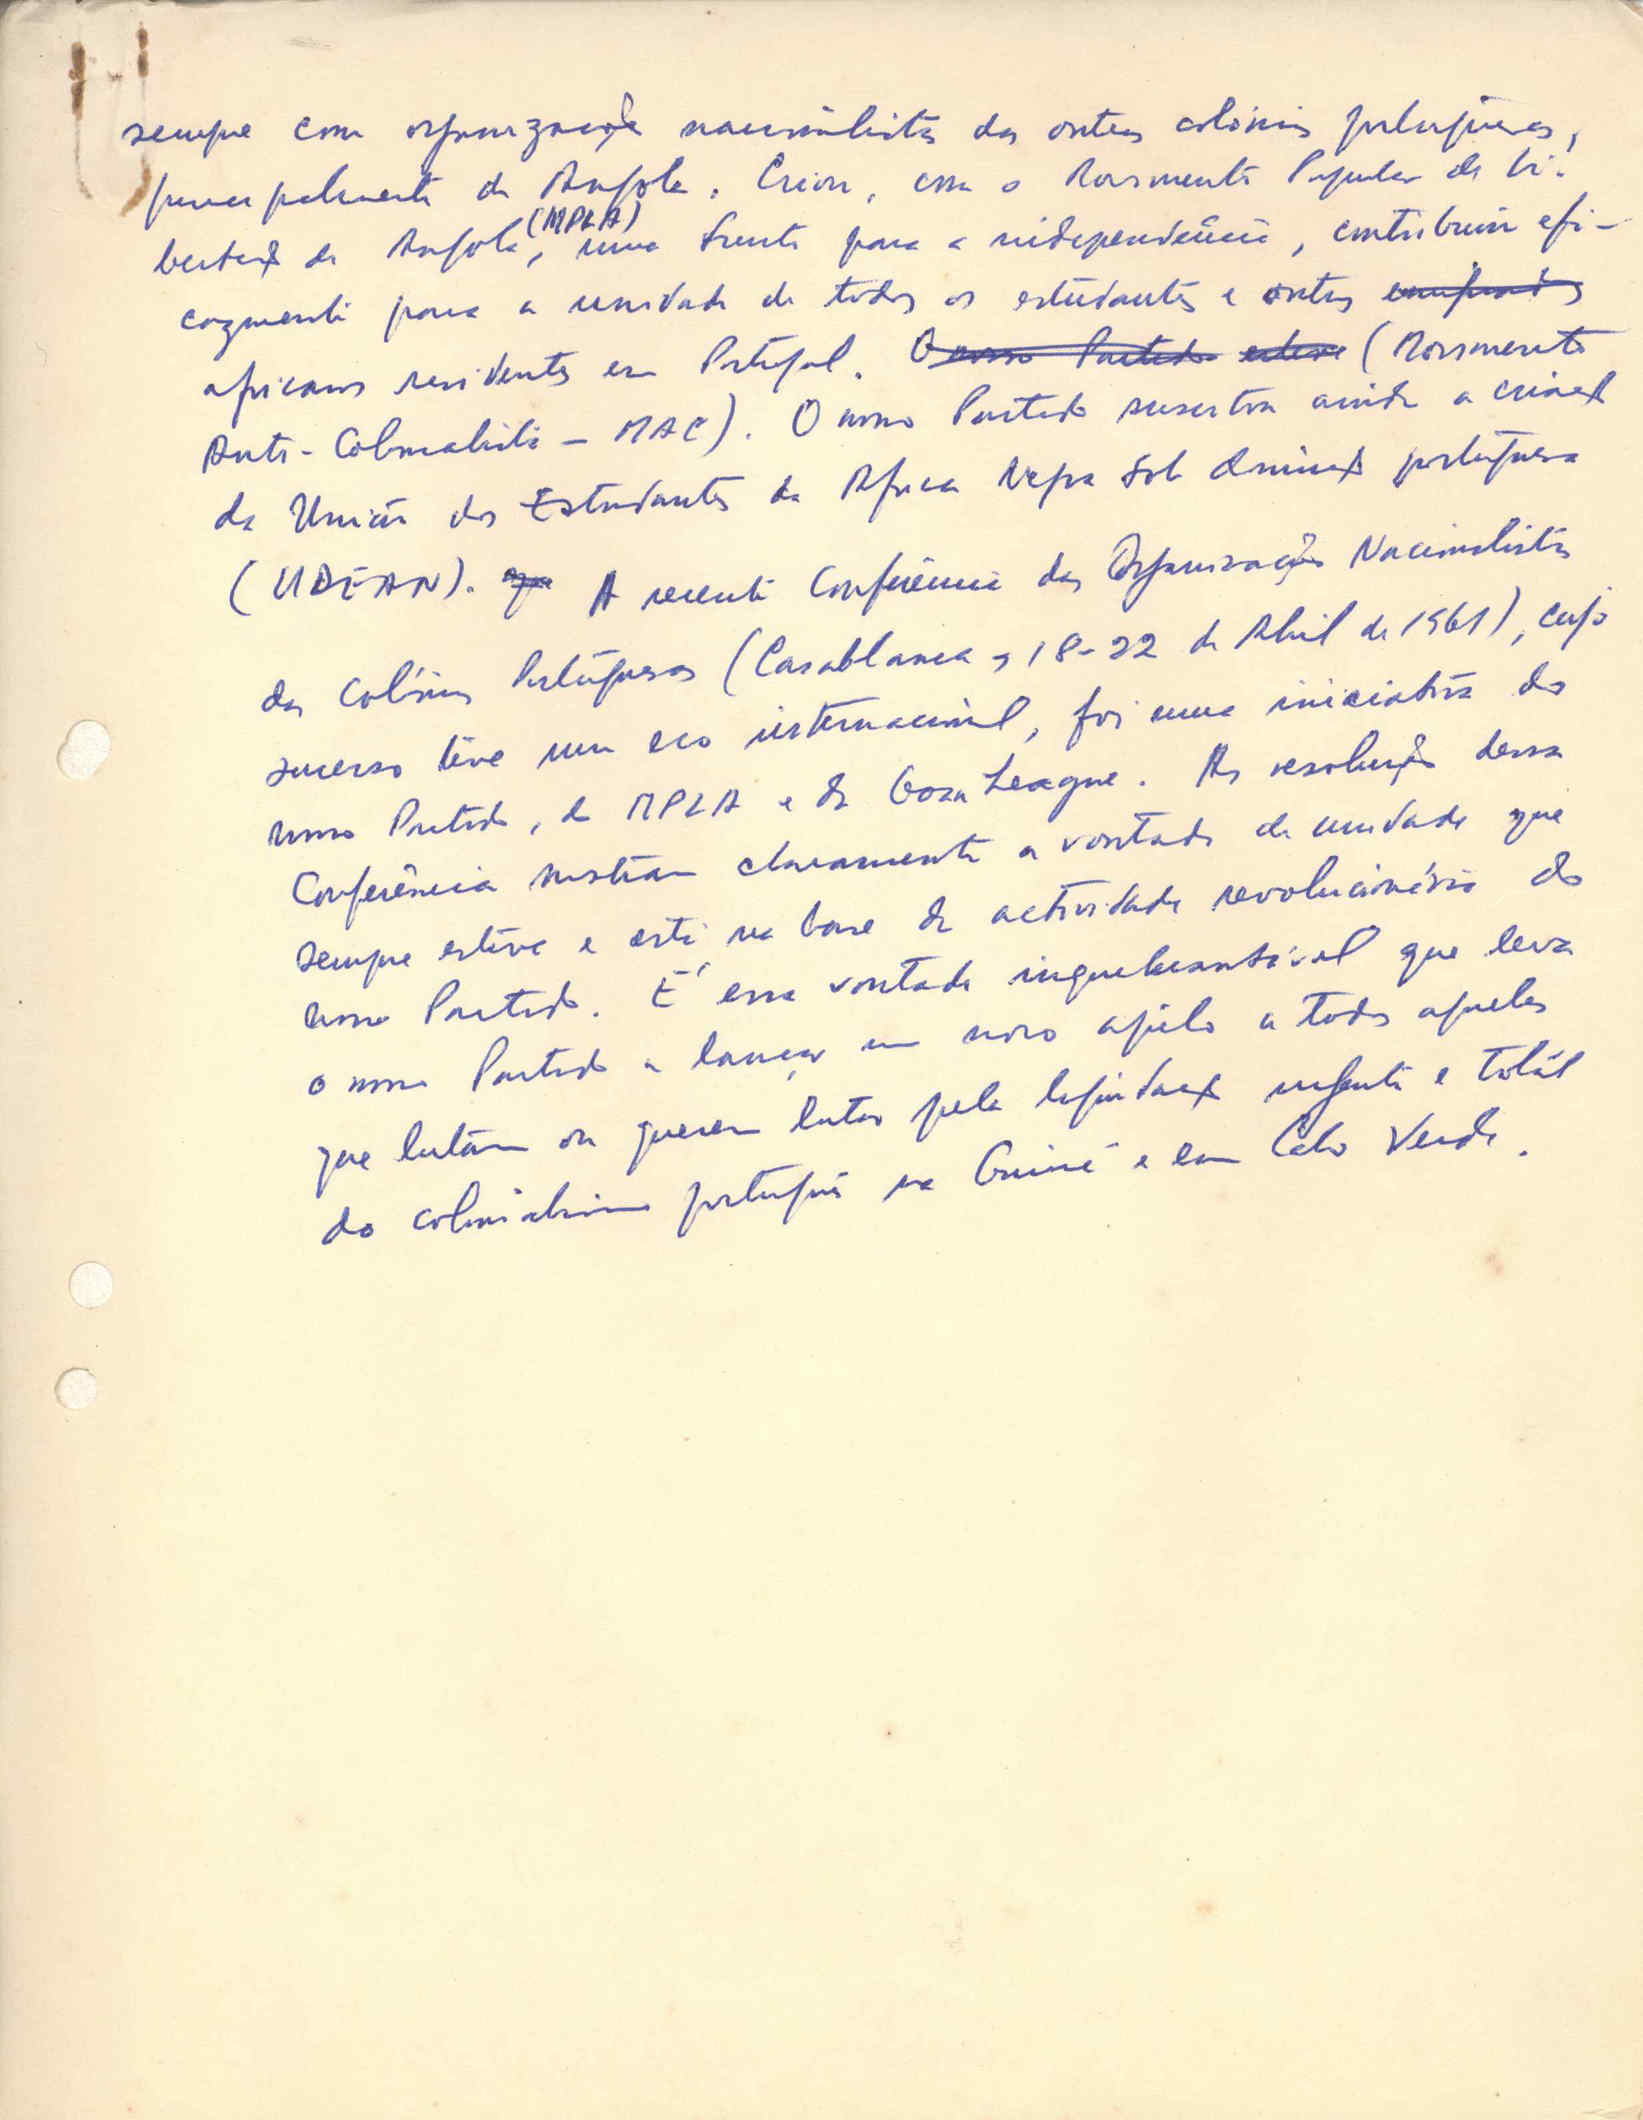 sempre com organizações nacionalistas das outras colónias portuguesas,
principalmente de Angola. Criou, com o Movimento Popular de Li-
bertação de Angola (MPLA), uma frente para a independência, contribuiu efi-
cazmente para a unidade de todos os estudantes e outros
africanos residentes em Portugal. O nosso Partido esteve (Movimento
Anti-Colonialista - MAC). O nosso Partido suscitou ainda a criação
da União dos Estudantes da Africa Negra sob dominação portuguesa
(UDEAN). que A recente Conferência das Organizações Nacionalistas
das Colónias Portuguesas (Casablanca, 18-22 de Abril de 1961), cujo
sucesso teve um eco internacional, foi uma iniciativa do
nosso Partido, do MPLA e da Goan League. As resoluções dessa
Conferência mostram claramente a vontade de unidade que
sempre esteve e está na base da actividade revolucionária do
nosso Partido. É essa vontade inquebrantável que leva
o nosso Partido a lançar um novo apêlo a todos aqueles
que lutam ou querem lutar pela liquidação urgente e total
do colonialismo português na Guiné e em Cabo Verde.